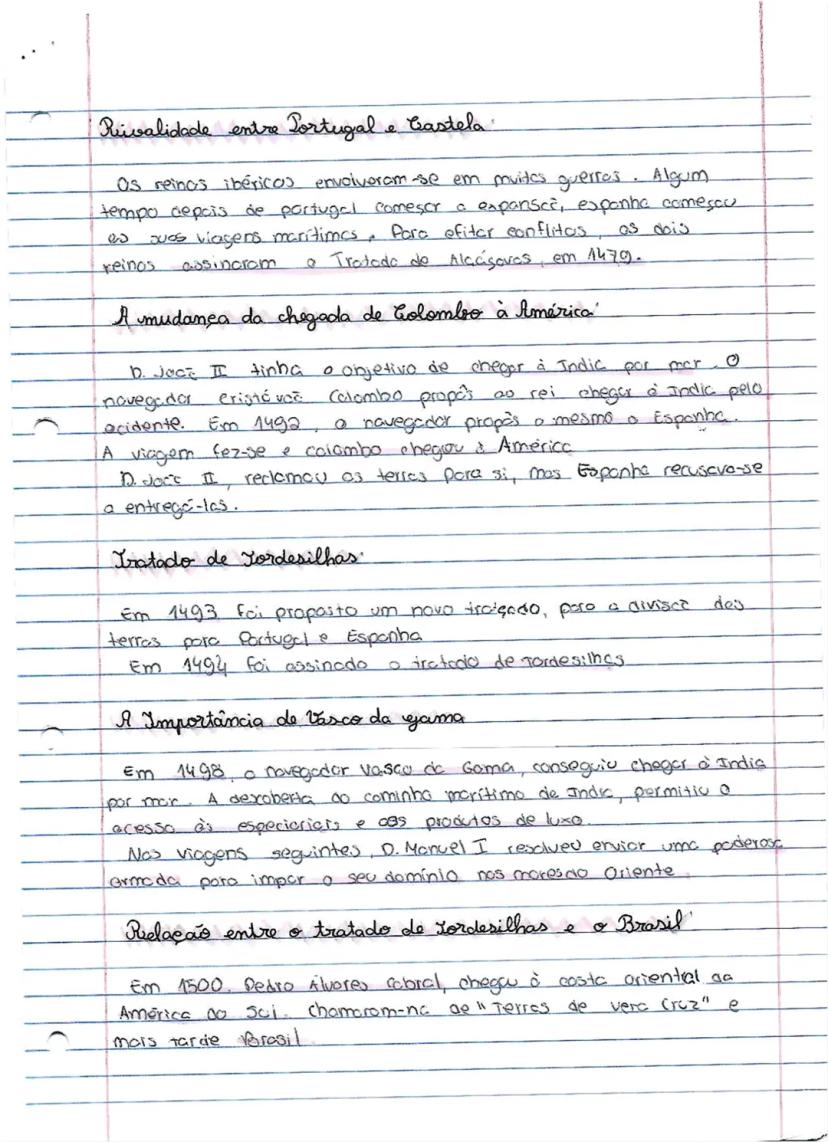 Rivalidade entre Portugal e Castela
Os reinos ibéricos envolveram-se em muitas guerras. Algum
tempo depois de portugal começar a expansão, espanha começou
as suas viagens marítimas. Para efitar conflitos, os dois
reinos assinaram o Tratado de Alcáçovas, em 1479.
A mudança da chegada de Colombo à América
D. João II tinha o onjetivo de chegar à India por mar. O
navegador cristóvão Colombo propôs ao rei chegar à India pelo
ocidente. Em 1492, o navegador propôs o mesmo a Espanha.
A viagem fez-se e colombo chegou à América
D. João II, reclamou as terras para si, mas Espanha recusava-se
a entregá-las.
Tratado de Tordesilhas
Em 1493 foi proposto um novo tratado, para a divisão das
terras para Portugal e Espanha
Em 1494 foi assinado o tratado de Tordesilhas
A Importância de Vasco da gama
Em 1498, o navegador Vasco da Gama, conseguiu chegar à India
por mar. A dexoberta do caminho marítimo de India, permitiu o
acesso às especiariais e aos produtos de luxo.
Nas viagens seguintes, D. Manuel I resolveu enviar uma poderosa
armada para impor o seu domínio nos mares do Oriente
Relação entre o tratado de Tordesilhas e o Brasil
Em 1500. Pedro Álvares Cabral, chegou à costa oriental da
América do Sul. Chamaram-na de "Terras de vera Cruz" e
mais tarde Brasil